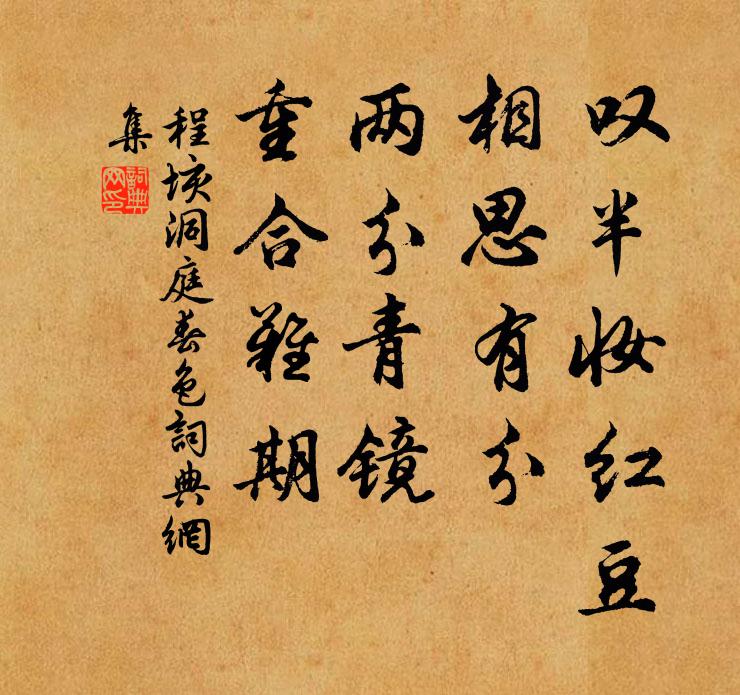 叹半妆红豆
相思有分
两分青镜
重合難期
程垓洞庭春色詞典網
集
詞典
网印